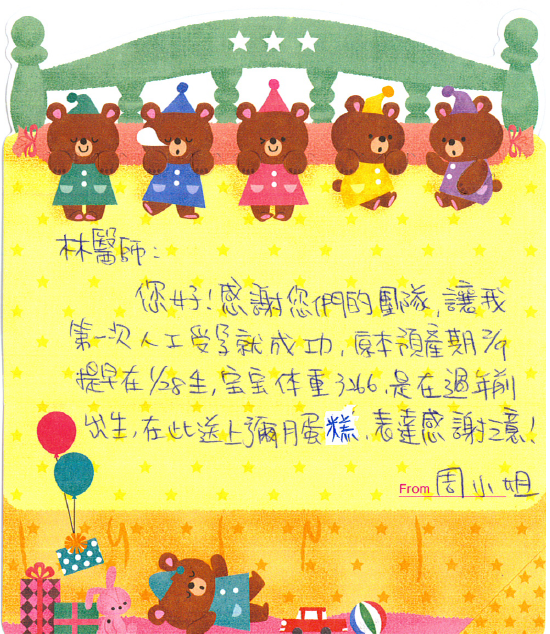 林醫師:
您好!感謝您們的團隊,讓我
第一次人工受孕就成功,原本預產期2/9
提早在1/28生,宝宝体重3166,是在過年前
出生,在此送上彌月蛋糕,表達感謝之意!
From 周小姐